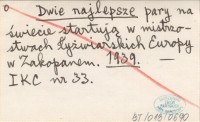 Dwie najlepsze pary na
świecie startują w mistrzo-
stwach łyżwiarskich Europy
w Zakopanem. 1939. —
IKC nr 33.
BJ/018/0690